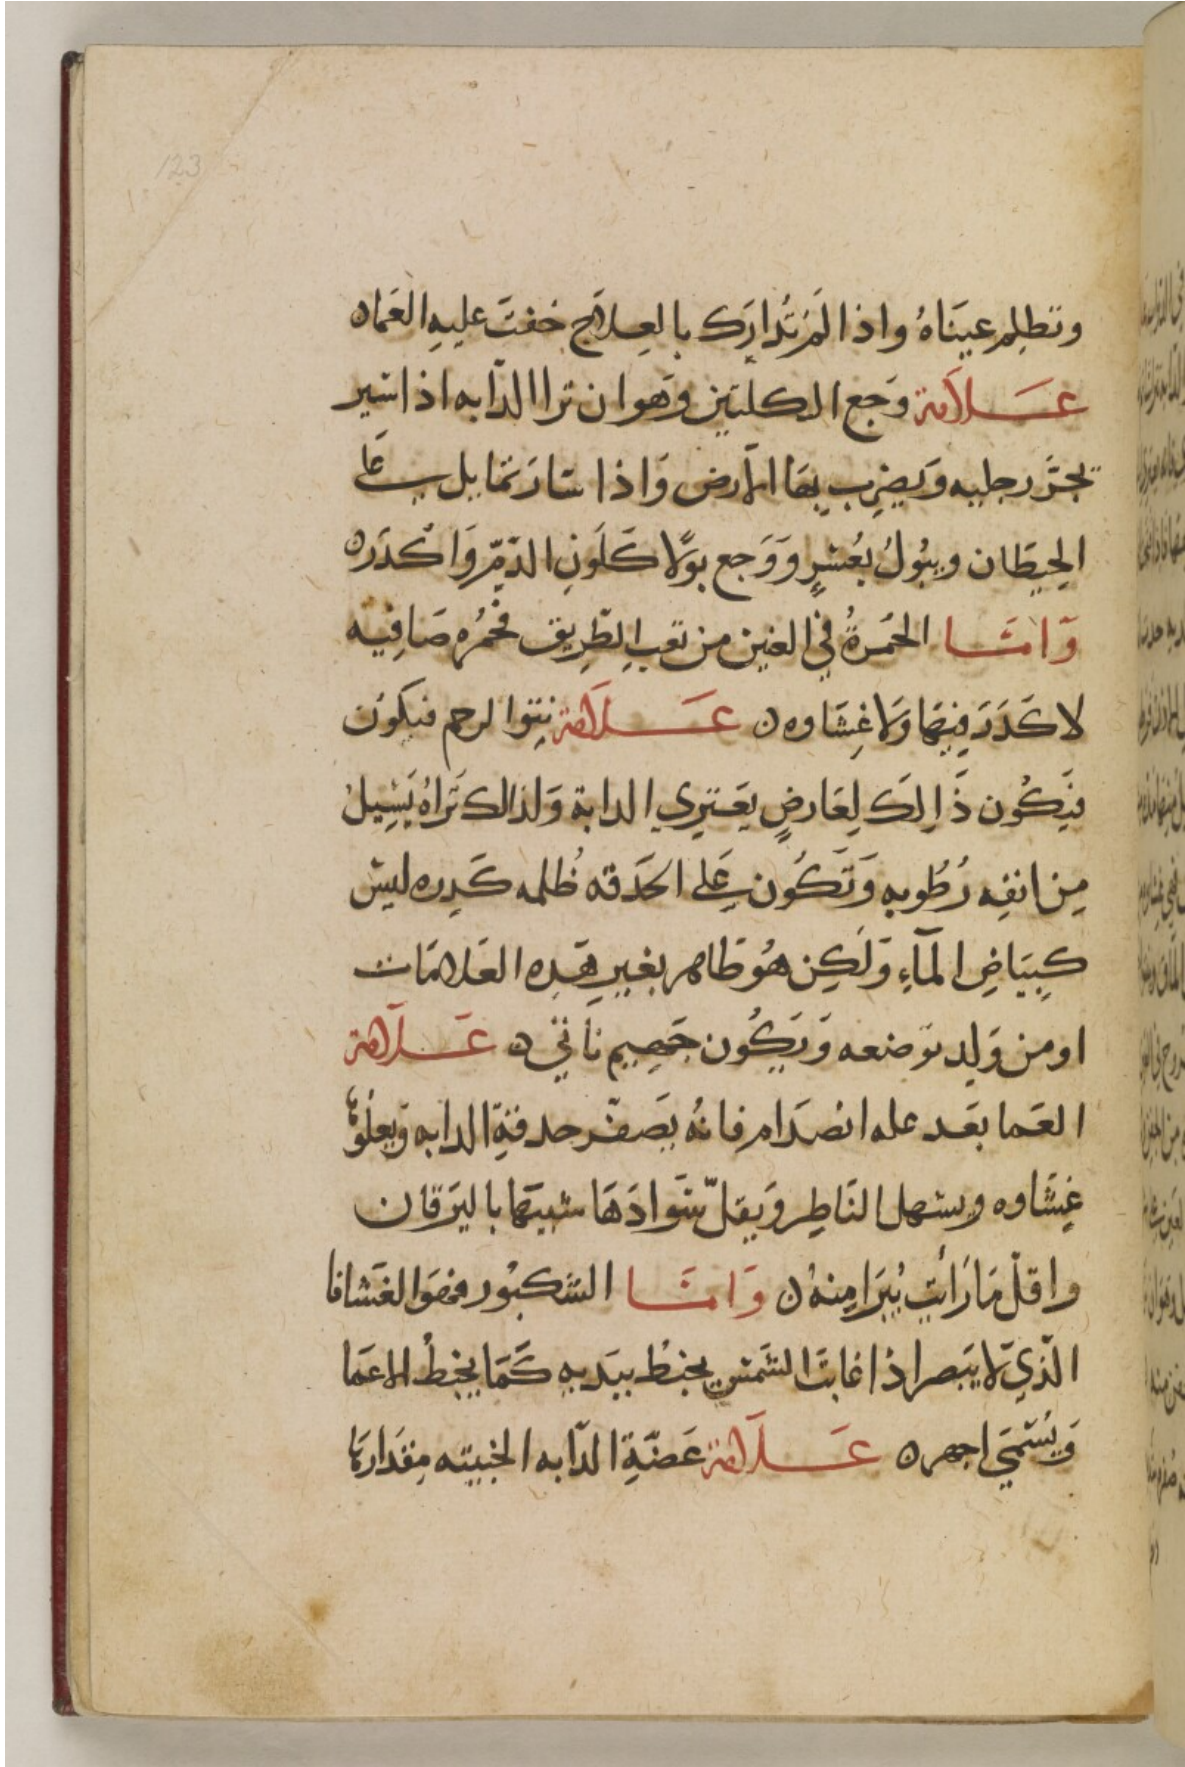 123
وتظلم عيناهُ واذا لَمْ تُدارَك بالعِلاَج خفتَ عليهِ العَماه
عَــلاَمة وَجع الكليتين وَهوا ن ترا الدّابه اذا تسير
تجرَّ رجليه وَيضرب بهَا الارض وَاذا سَارَ تمَايل عَلى
الحِيطَان ويبُولُ بعُسْرٍ وَوَجع بولًا كَلَونِ الدّمِّ وَاكْدَره
وَامَّــا الحُمرةُ في العين من تعبِ الطّرِيق فحُمُره صَافِيه
لا كَدَرَ فيهَا وَلا غِشَاوه ں عَــلاَمة نِتوا الرحم فيكوُن
فيَكُون ذَالِكَ لِعَارضٍ يعَتِري الدابة وَلذالك تَراهُ يَسِيلُ
مِن انفِه رُطُوبه وَتَكُون عَلى الحَدَقه ظُلمه كَدِره ليسَ
كبِيَاضِ المآءِ وَلَكِن هُوَ ظاهر بغيرِ هَذِه العَلامَات
او من وَلدِ توَضعه وَيَكُون جَحِيم ناتي ں عَــلاَمة
العَما بعَد عله انصدَام فانهُ يَصفّر حدقةِ الدابه وَيعلُوهُ
غِشَاوه ويسهل النَاظِر وَيقلّ سَوادَهَا شبيهَا باليَرَقان
واقلّ مَا رَأيت يُبَرا مِنهُ ں وَامَّــا الشبكبُور فهَوَ الغَشا فا
الّذِي لا يَبصر اذا غابتَ الشمّسِ يخبطُ بيَديهِ كَمَا يخبِطُ الاعمَا
وَيُسَمَّي اجهر ں عَــلاَمة عَضّةِ الدّابه الخبيثه مِقدَارهَا